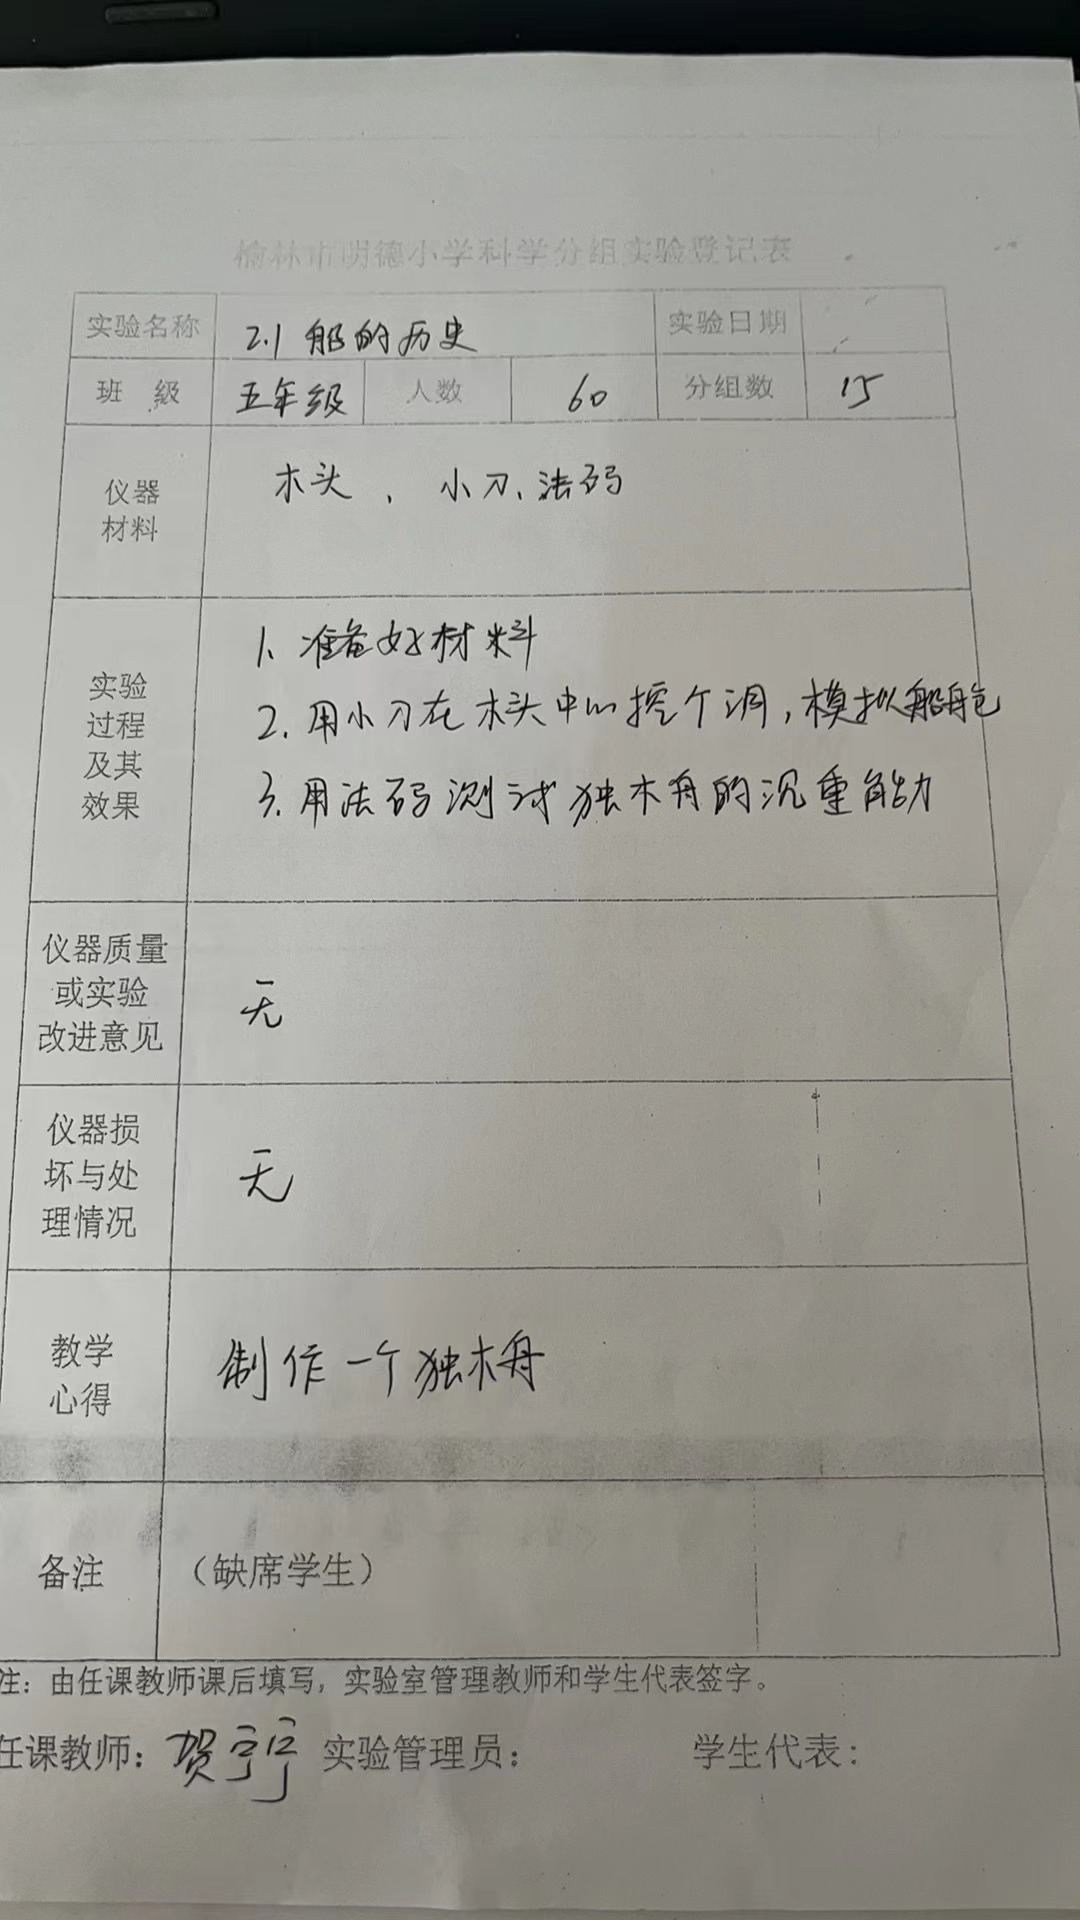 榆林市明德小学科学分组实验登记表
实验名称 2.1 船的历史 实验日期
班 级 五年级 人数 60 分组数 15
仪器
材料
木头、小刀、法码
实验
过程
及其
效果
1、准备好材料
2.用小刀在木头中心挖个洞,模拟船舱
3.用法码测试独木舟的沉重能力
仪器质量
或实验
改进意见
无
仪器损
坏与处
理情况
无
教学
心得
制作一个独木舟
备注 (缺席学生)
注:由任课教师课后填写,实验室管理教师和学生代表签字。
任课教师:贺宁宁 实验管理员: 学生代表: